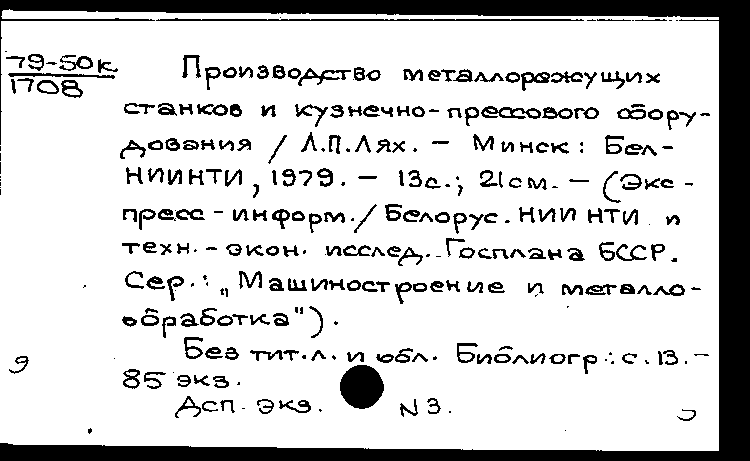 79-50к
1708
Производство металлорежущих
станков и кузнечно-прессового обору-
дования / Л.П.Лях. – Минск: Бел-
НИИНТИ, 1979. – 13с.; 21см. – (Экс-
пресс-информ./ Белорус. НИИНТИ и
техн.-экон. исслед. Госплана БССР.
Сер.: „Машиностроение и металло-
обработка").
Без тит.л. и обл. Библиогр.: с.13. –
85 экз.
Дсп. экз. N3.
9